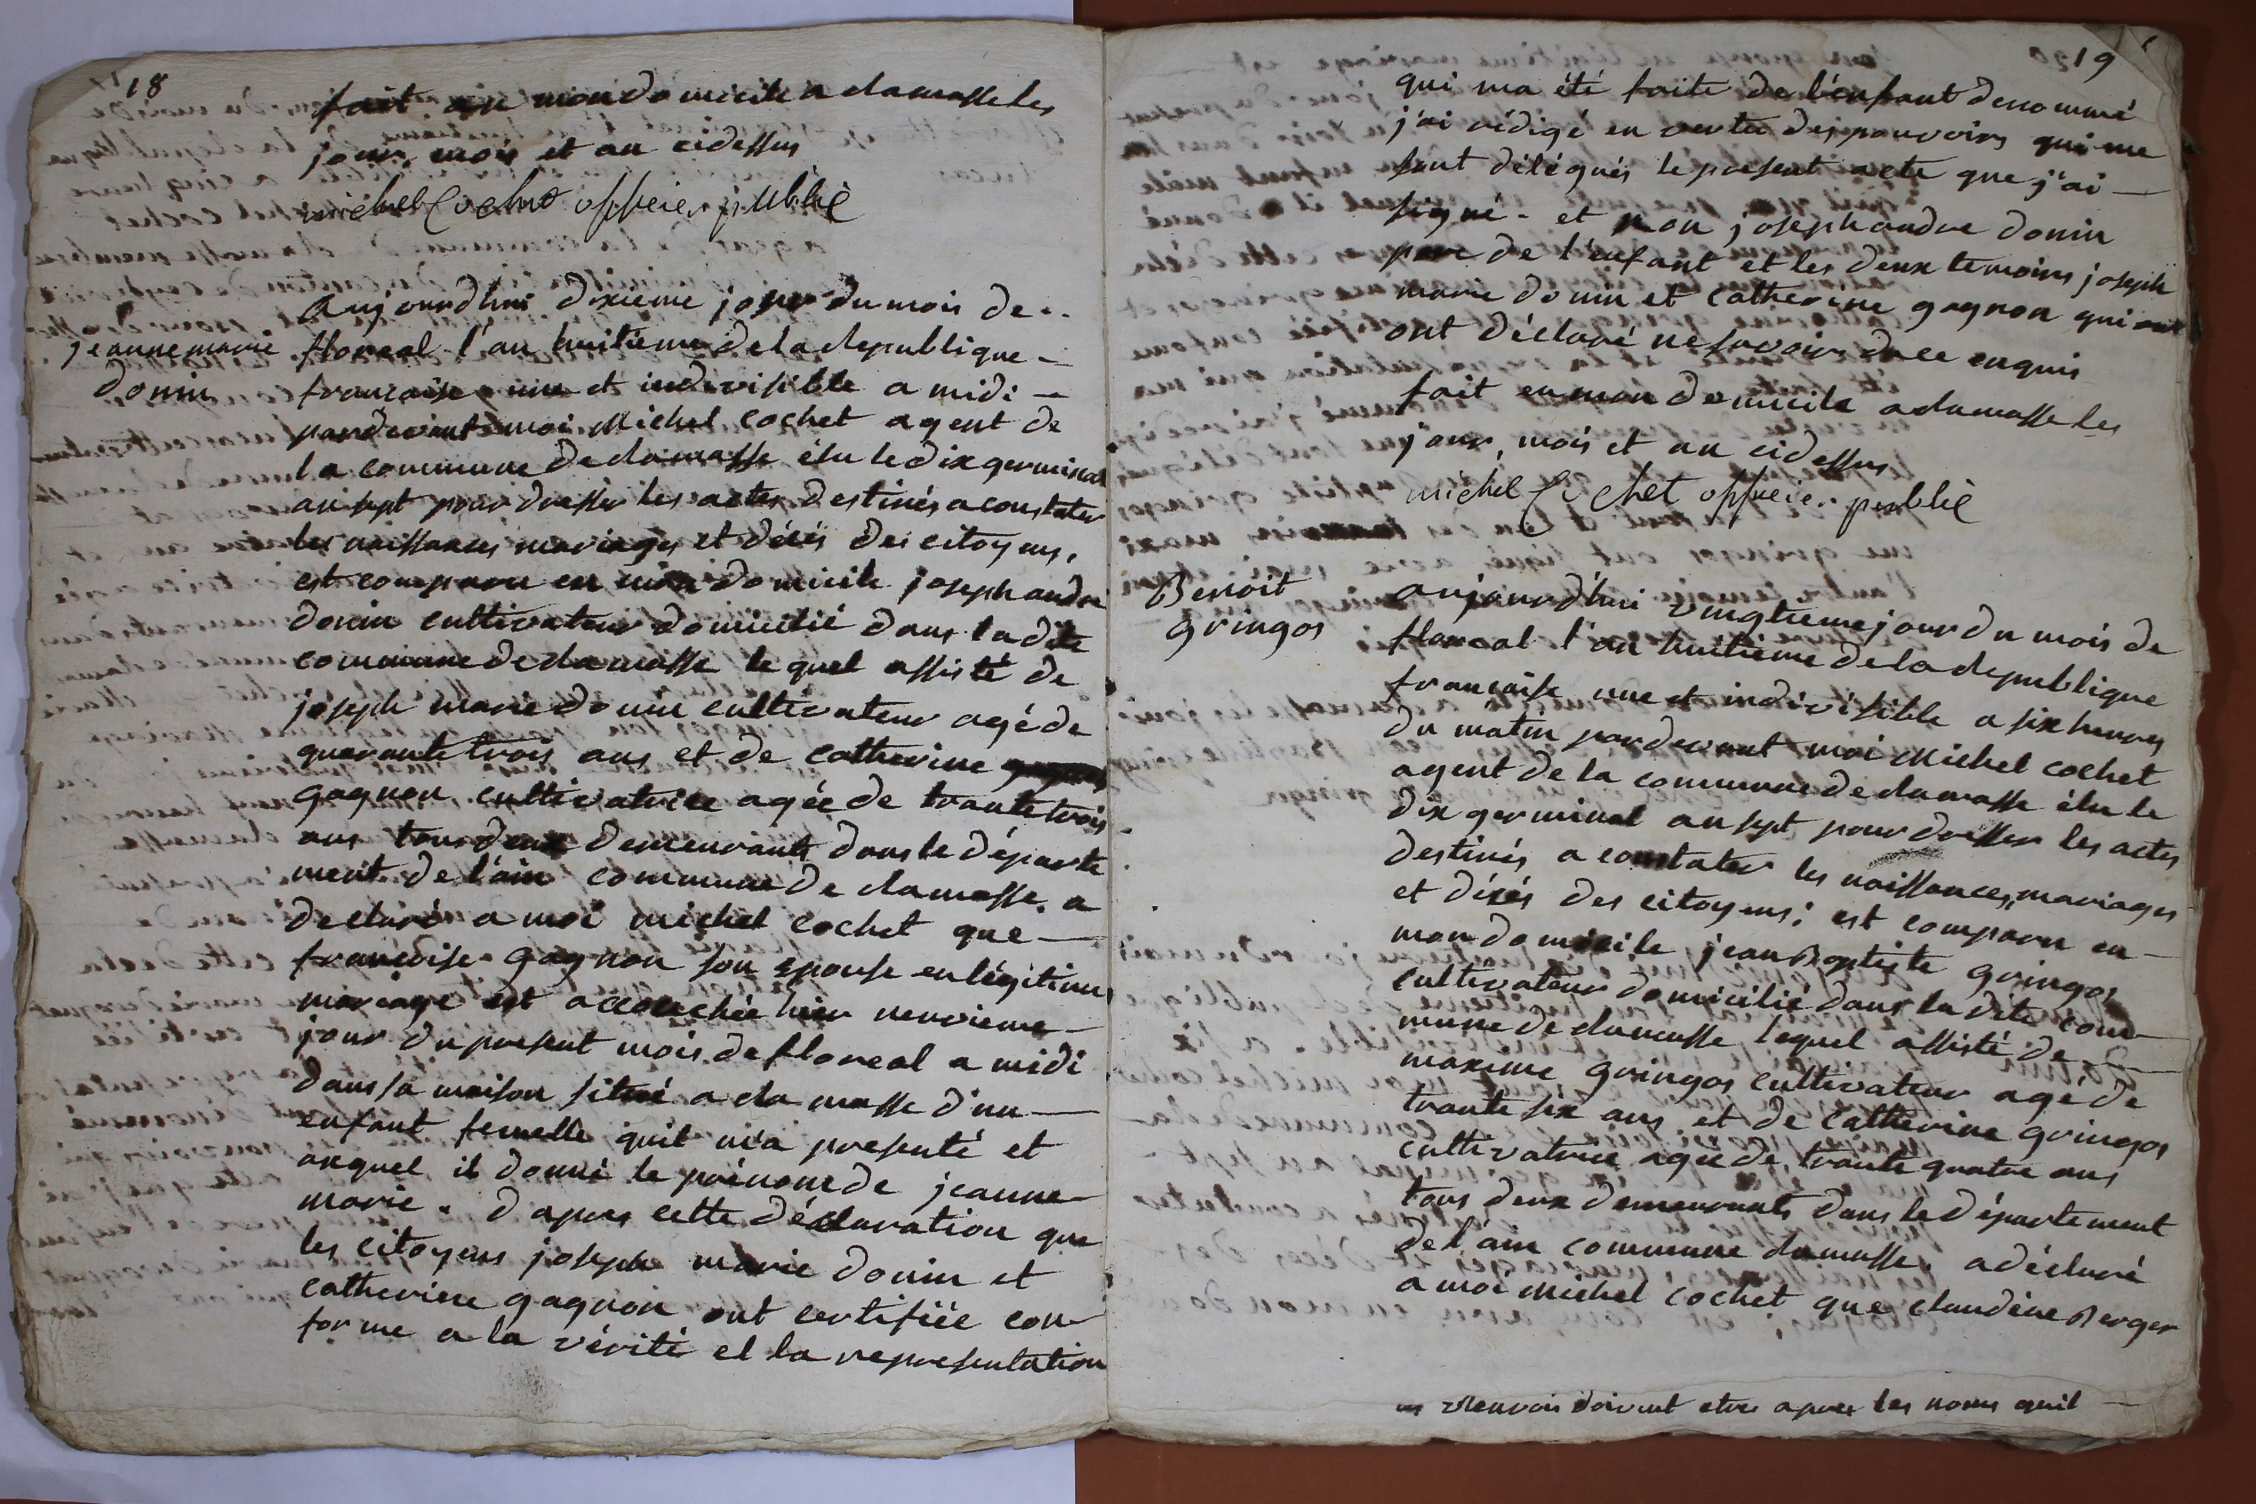 18
fait en mon domicile a lamasse les
jour, mois et an cidessus
michel Cochet officier publié
jeanne marie
donin
aujourdhui dixieme jour du mois de
floreal l'an huitieme de la republique
francaise une et indivisible a midi
pardevant moi Michel cochet agent de
la commune de lamasse élu le dix germinal
an sept pour dresser les actes destinés a constater
les naissances mariages et décés des citoyens,
est comparu en mon domicile joseph andré
donin cultivateur domicilié dans la dite
commune de lamasse le quel assisté de
joseph marie donin cultivateur agé de
quarante trois ans et de catherine
gagnon cultivatrice agée de trante trois
ans tous deux demeurants dans le départe
ment de l'ain commune de lamasse. a
declaré a moi michel cochet que
francoise gagnon son epouse en légitime
mariage est accouchée hier neuvieme
jour du present mois de floreal a midi
dans sa maison situé a la masse d'un
enfant femelle quil m'a presenté et
auquel il donné le prénom de jeanne
marie. d'apres cette déclaration que
les citoyens joseph marie donin et
catherine gagnon ont certifiée con
forme a la vérité et la representation
19
qui ma été faite de l'enfant denommé
j'ai rédigé en vertu des pouvoirs qui me
sont délégués le present acte que j'ai
signé. et non joseph andre donin
pere de l'enfant et les deux temoins joseph
marie donin et catherine gagnon qui
ont déclaré ne savoir de ce enquis
fait en mon domicile a lamasse les
jour, mois et an cidessus
michel Cochet officier publié
Benoit
gringos
aujourd'hui vingtieme jour du mois de
floreal l'an huitieme de la republique
francaise une et indivisible a six heures
du matin pardevant moi Michel cochet
agent de la commune de lamasse élu le
dix germinal an sept pour dresser les actes
destinés a constater les naissances, mariages
et décés des citoyens; est comparu en
mon domicile jean Baptiste gringos
cultivateur domicilié dans la dite com
mune de lamasse lequel assisté de
maxime gringos cultivateur agé de
trante six ans et de Catherine gringos
cultivatrice agée de trante quatre ans
tous deux demeurants dans le département
de l'ain commune lamasse. a déclaré
a moi Michel cochet que claudine Berger
renvois doivent etre apres les noms quil